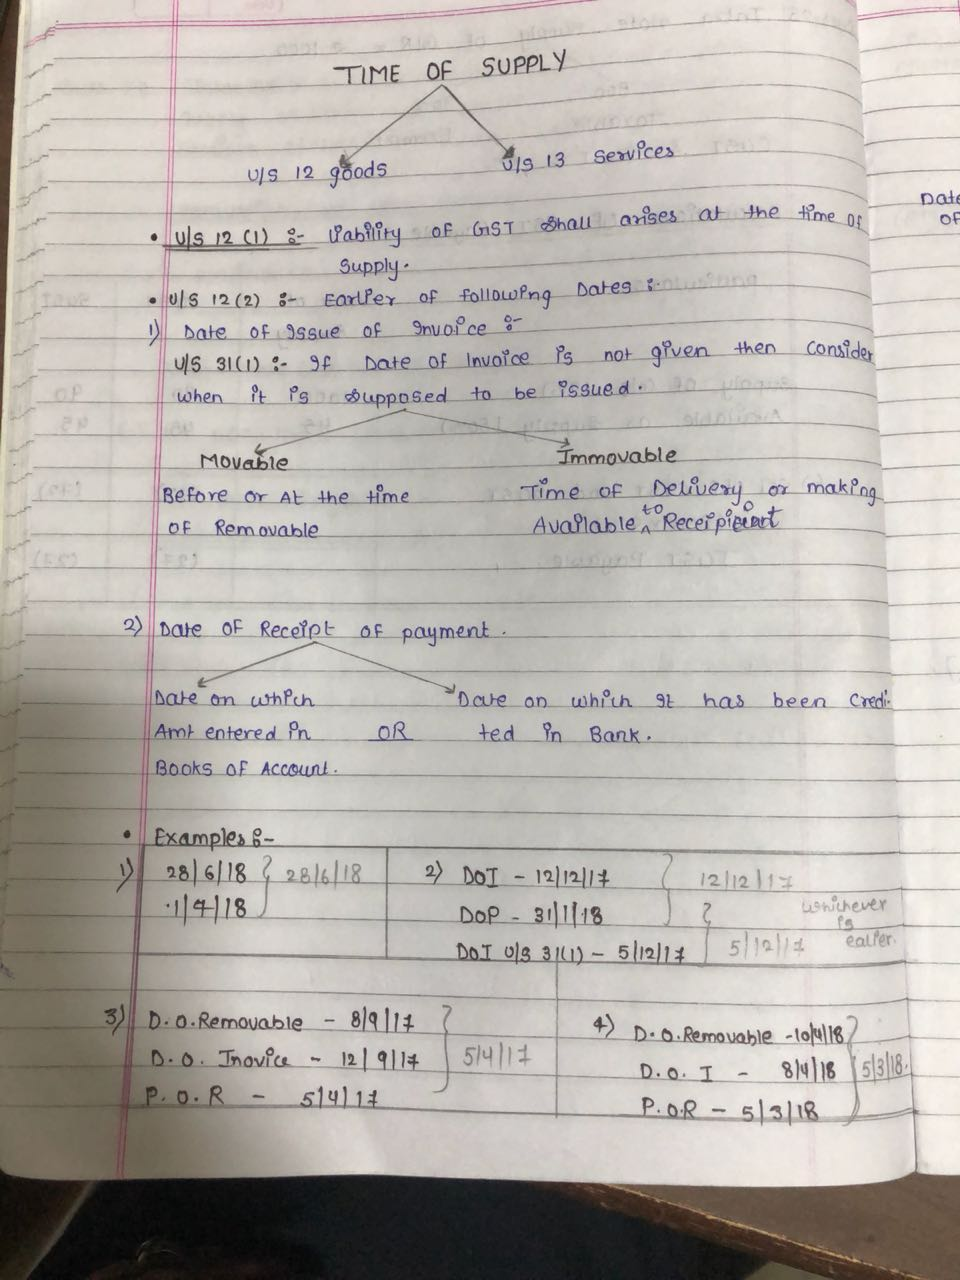 TIME OF SUPPLY
U/S 12 goods
U/S 13 Services
• U/S 12 (1) :- liability of GST shall arises at the time of
Supply.
• U/S 12(2) :- Earlier of following Dates :-
1) Date of Issue of Invoice :-
U/S 31(1) :- If Date of Invoice is not given then consider
when it is supposed to be issued.
Movable
Immovable
Before or At the time
of Removable
Time of Delivery or making
Available to Receipient
2) Date of Receipt of payment.
Date on which
Amt entered in
Books of Account.
OR
Date on which It has been Credi-
ted in Bank.
• Examples :-
1) 28/6/18
1/7/18
28/6/18
2) DOI - 12/12/17
DOP - 31/1/18
DOI U/S 31(1) - 5/12/17
12/12/17
whichever
is
ealier.
5/12/17
3) D.O.Removable - 8/9/17
D.O. Inovice - 12/9/17
P.O.R - 5/4/17
5/4/17
4) D.O.Removable - 10/4/18
D.O.I - 8/4/18
P.O.R - 5/3/18
5/3/18.
Date
of